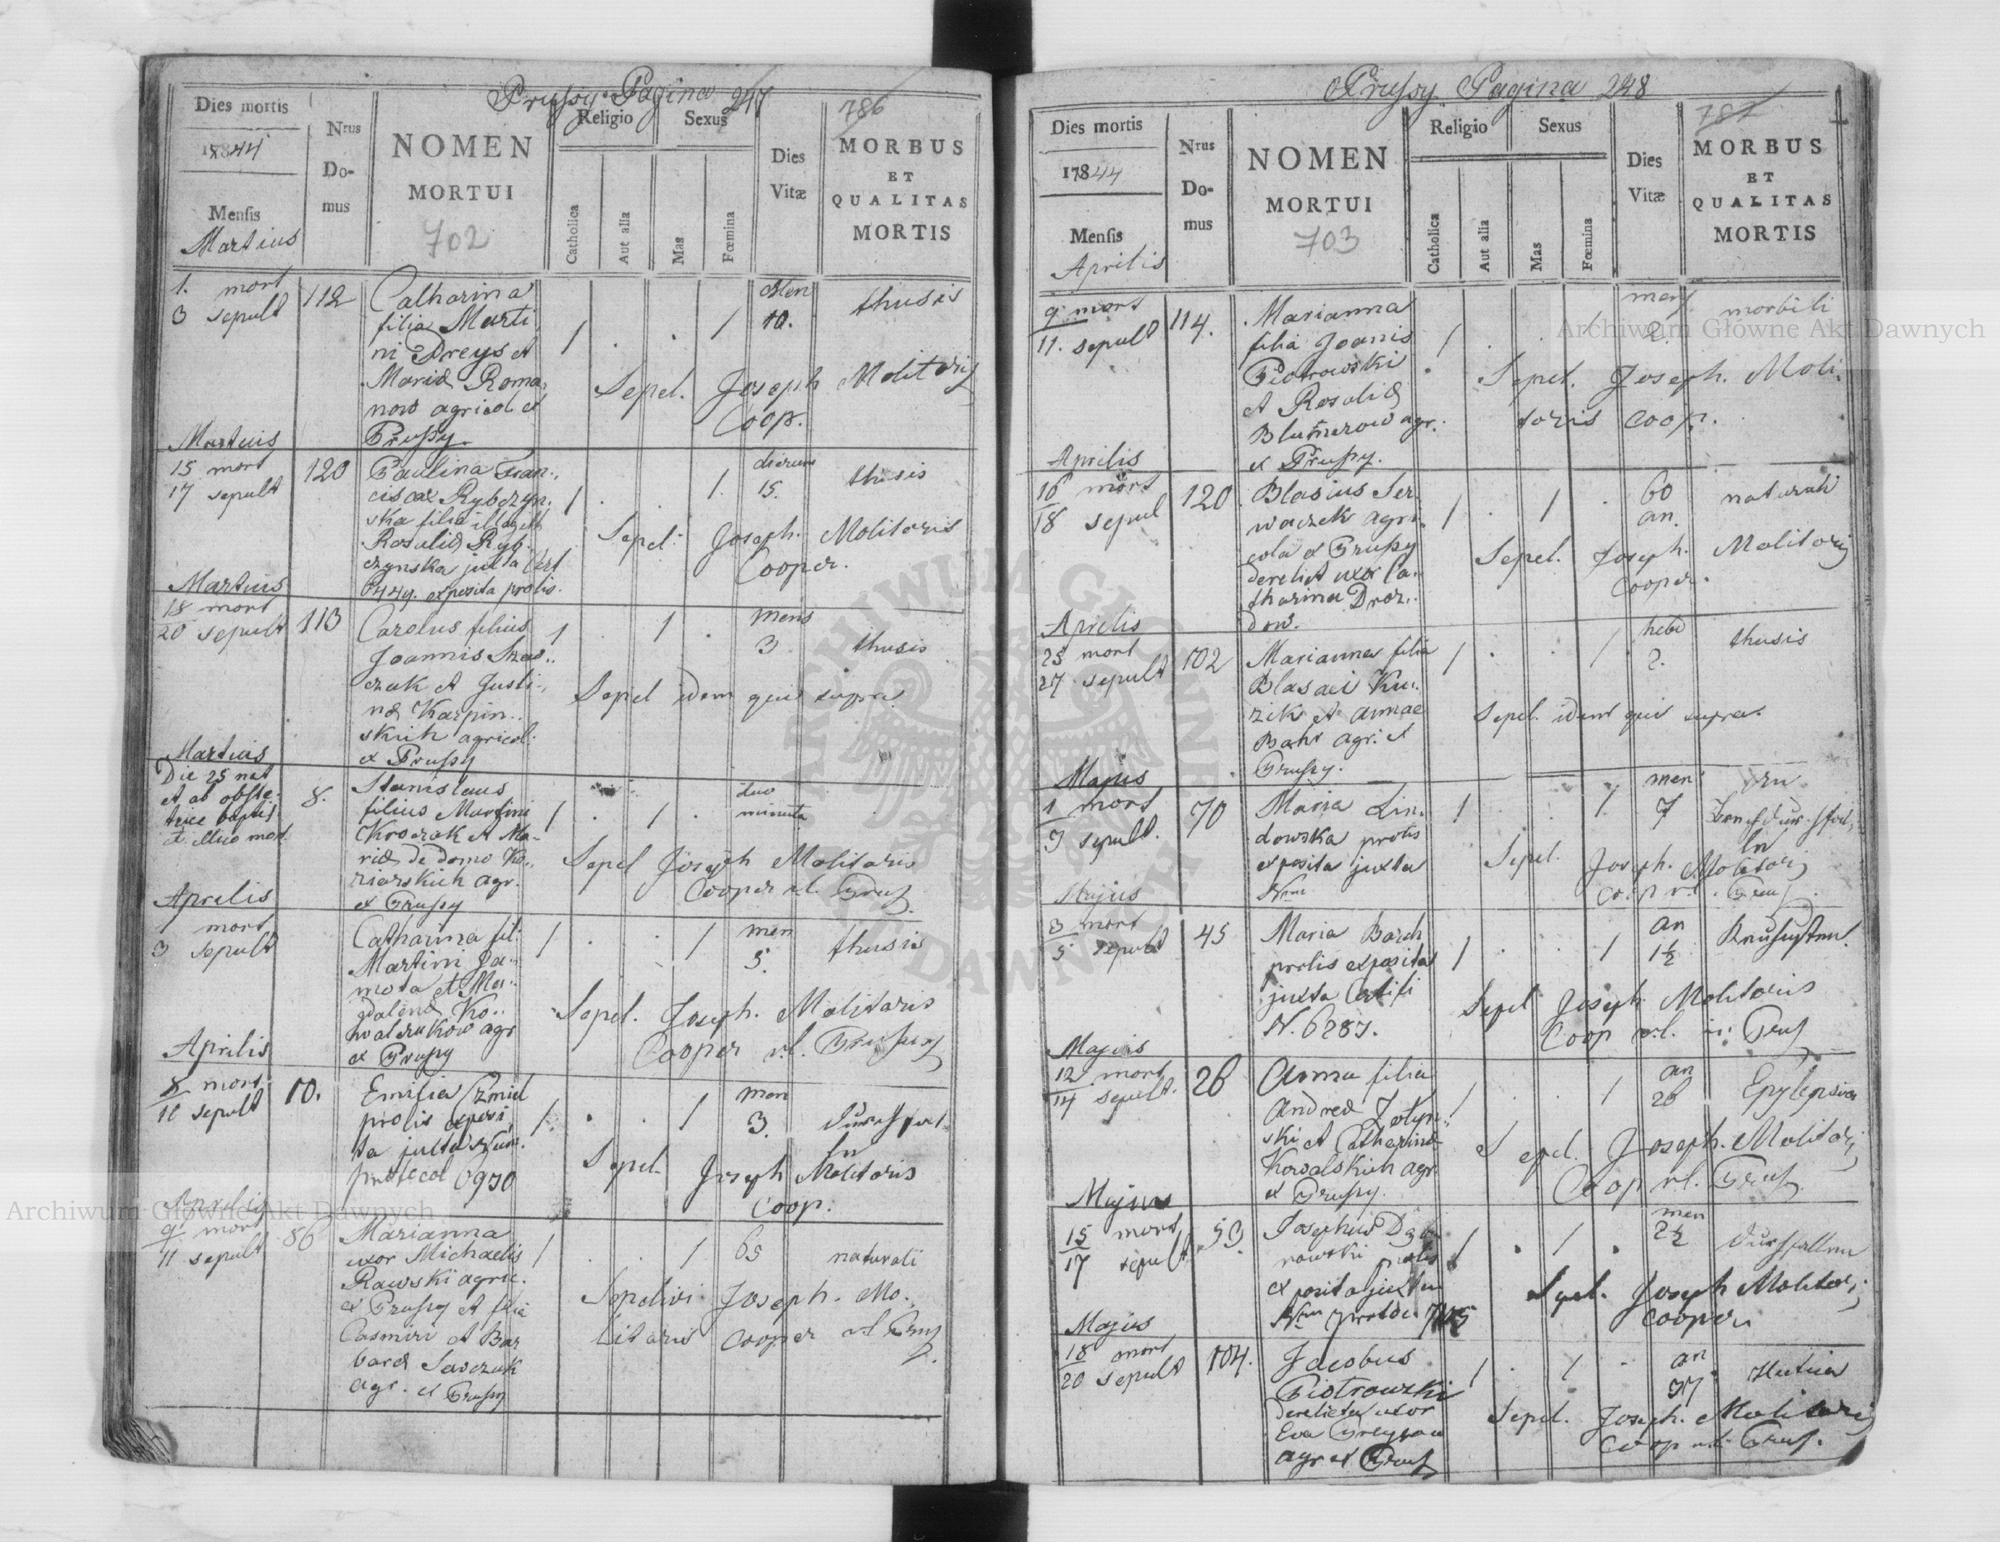 Prussy Pagina 247
786
Dies mortis
1844
Mensis
Martius
Nrus
Do-
mus
NOMEN
MORTUI
702
Religio
Catholica
Aut alia
Sexus
Mas
Fœmina
Dies
Vitæ
MORBUS
ET
QUALITAS
MORTIS
1. mort
3 sepult
112
Catharina
filia Marti
ni Dreys et
Mariæ Roma
now agricol ex
Prussy.
1 . . 1
Men
10.
thusis
Sepel. Joseph Molitoris
Coop.
Martius
15 mort
17 sepult
120
Paulina Fran-
ciscae Rybczyn-
ska filia illegit
Rosaliæ Ryb-
czynska juxta Cert
exposita prolis.
1 . . 1.
dierum
15.
thusis
Sepel. Joseph. Molitoris
Cooper.
Martius
18 mort
20 sepult
113
Carolus filius
Joannis
et Justi-
næ Karpin-
skich agricol.
ex Prussy
1 . 1 .
mens
3
thusis
Sepel idem qui supra
Martius
Die 25 nat
et ab obste-
trice baptis
et illico mort.
8.
Stanislaus
filius Martini
Kroczak et Ma-
riæ de domo Ko-
ziarskich agr.
ex Prussy
1 . 1 .
duo
minuta
Sepel Joseph Molitoris
Cooper r.l. Prus.
Aprilis
1 mort
3 sepult
Catharina fil.
Martini Ja-
mota et Ma-
gdalenæ Ko-
walczukow agr
ex Prussy
1 . . 1
men
5.
thusis
Sepel. Joseph. Molitoris
Cooper r.l. Prussy
Aprilis
8 mort
10 sepult
10.
Emilia Czmiel
prolis exposi
ta juxta Num.
protocol 6930
1 . . 1
men
3.
Sepel. Joseph Molitoris
Coop.
Aprilis
9 mort
11 sepult
56
Marianna
uxor Michaelis
Rawski agric.
ex Prussy et filia
Casmiri et Bar
baræ Sawczuk
agr. ex Prussy
1 . . 1
65
naturali
Sepelivi Joseph. Mo-
litoris Cooper r.l. Prus
Prussy Pagina 248
787
Dies mortis
17844
Mensis
Aprilis
Nrus
Do-
mus
NOMEN
MORTUI
703
Religio
Catholica
Aut alia
Sexus
Mas
Fœmina
Dies
Vitæ
MORBUS
ET
QUALITAS
MORTIS
9 mort
11. sepult
114.
Marianna
filia Joanis
Piotrowski
et Rosaliæ
Blumerow agr.
ex Prussy.
1 . . 1
mens
2.
morbili
Sepel. Joseph. Moli-
toris Coop.
Aprilis
16 mort
18 sepul
120
Blasius Ser-
waczek agri-
cola ex Prussy
derelict uxor Ca-
tharina Droz-
dow.
1 . 1 .
60
an.
naturali
Sepel. Joseph. Molitoris
Cooper.
Aprilis
25 mort
27 sepult
102
Marianna filia
Blasaei Ku-
zik et annae
Bahr agr. ex
Prussy.
1 . . 1
hebd
2.
thusis
Sepel. idem qui supra.
Majus
1 mort
3 sepult.
70
Maria Lin-
dowska prolis
exposita juxta
Num
1 . . 1
men
7
Sepel. Joseph. Molitoris
Coop r.l. Prus
Majus
3 mort
5 sepult
45
Maria Barch
prolis exposita
juxta Certifi
N. 6287.
1 . . 1
an
1½
Keuchusten.
Sepel Joseph Molitoris
Coop r.l. in Prus
Majus
12 mort
14 sepult.
26
Anna filia
Andreæ
ski et Catharinæ
Kowalskich agr
ex Prussy.
1 . . 1
an
26
Epylepsia
Sepel. Joseph. Molitoris
Coop r.l. Prus.
Majus
15 mort
17 sepult
53
Josephus Dąb
rowski prolis
exposita juxta
Num protoc.
1 . 1 .
men
2½
Durchfallen
Sepel. Joseph Molitoris
Cooper
Majus
18 mort
20 sepult
104.
Jacobus
Piotrowski
derelicta uxor
Eva
agr ex Prus
1 . 1 .
an
37
Sepel. Joseph. Molitoris
Coop r.l. Prus.
Archiwum Główne Akt Dawnych
Archiwum Główne Akt Dawnych
ARCHIWUM GŁÓWNE AKT DAWNYCH